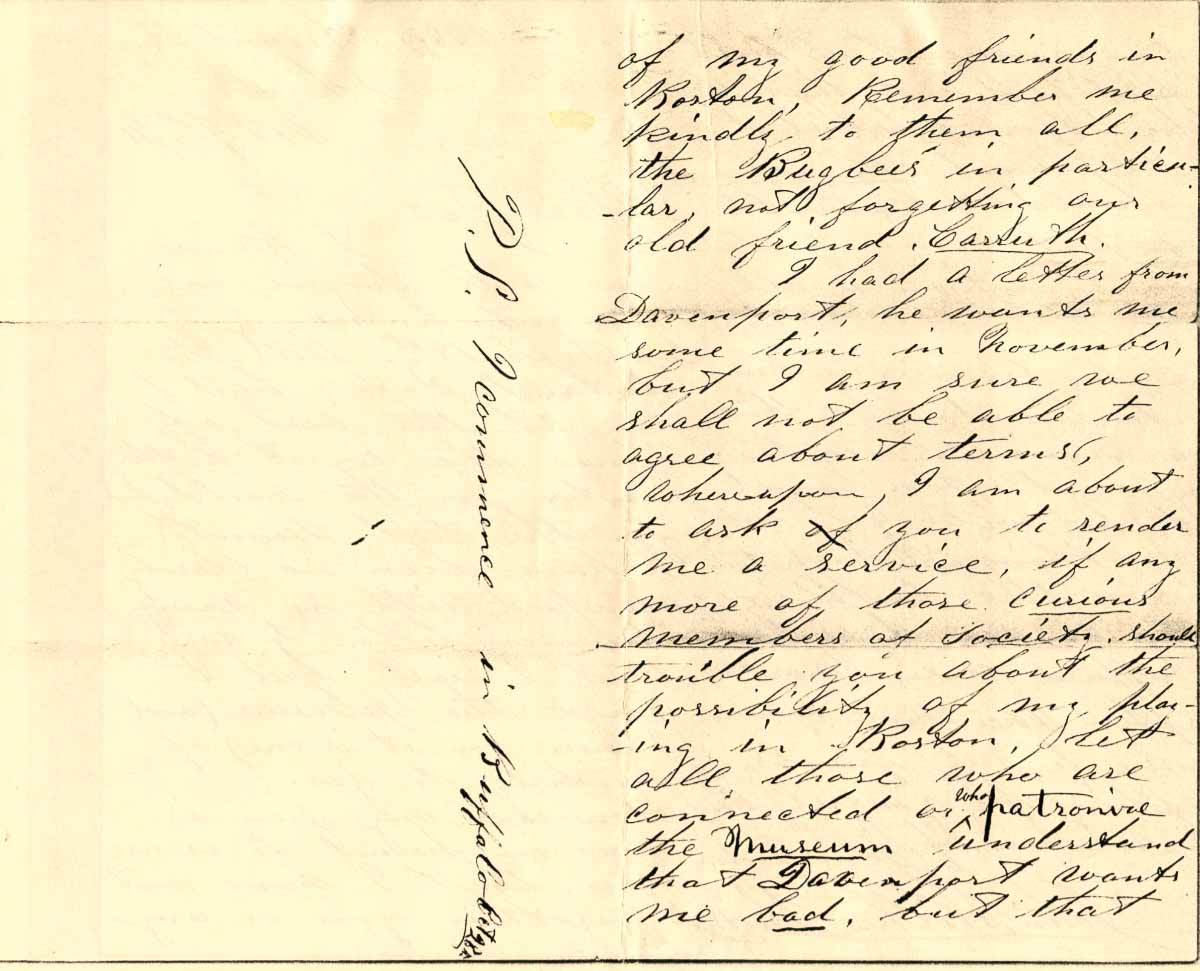 of my good friends in
Boston, Remember me
kindly to them all,
the Bugbees in particu-
-lar, not forgetting our
old friend Carruth.
I had a letter from
Davenport, he wants me
some time in November,
but I am sure we
shall not be able to
agree about terms,
whereupon, I am about
to ask of you to render
me a service, if any
more of those curious
members of society should
trouble you about the
possibility of my play-
-ing in Boston, let
all those who are
connected or who patronize
the Museum understand
that Davenport wants
me bad, but that
P.S. I commence in Buffalo Oct